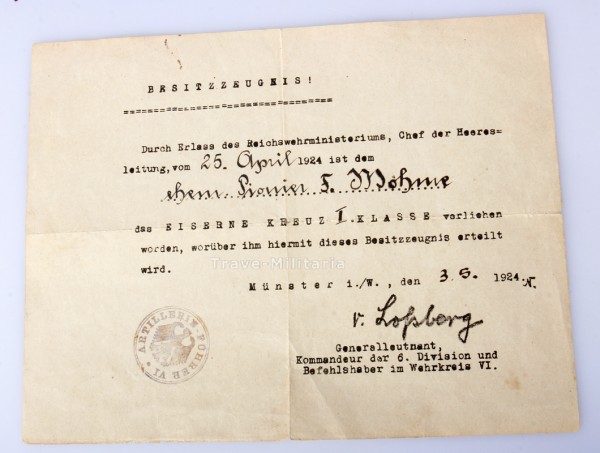 BESITZZEUGNIS!
==================================
Durch Erlass des Reichswehrministeriums, Chef der Heeres=
leitung, vom 25. April 1924 ist dem
ehem. Pionier F. Möhme
das EISERNE KREUZ I. KLASSE verliehen
worden, worüber ihm hiermit dieses Besitzzeugnis erteilt
wird.
Trave-Militaria
Münster i./W., den 3.5. 1924.
v. Loßberg
Generalleutnant,
Kommandeur der 6. Division und
Befehlshaber im Wehrkreis VI.
ARTILLERIE-FÜHRER VI